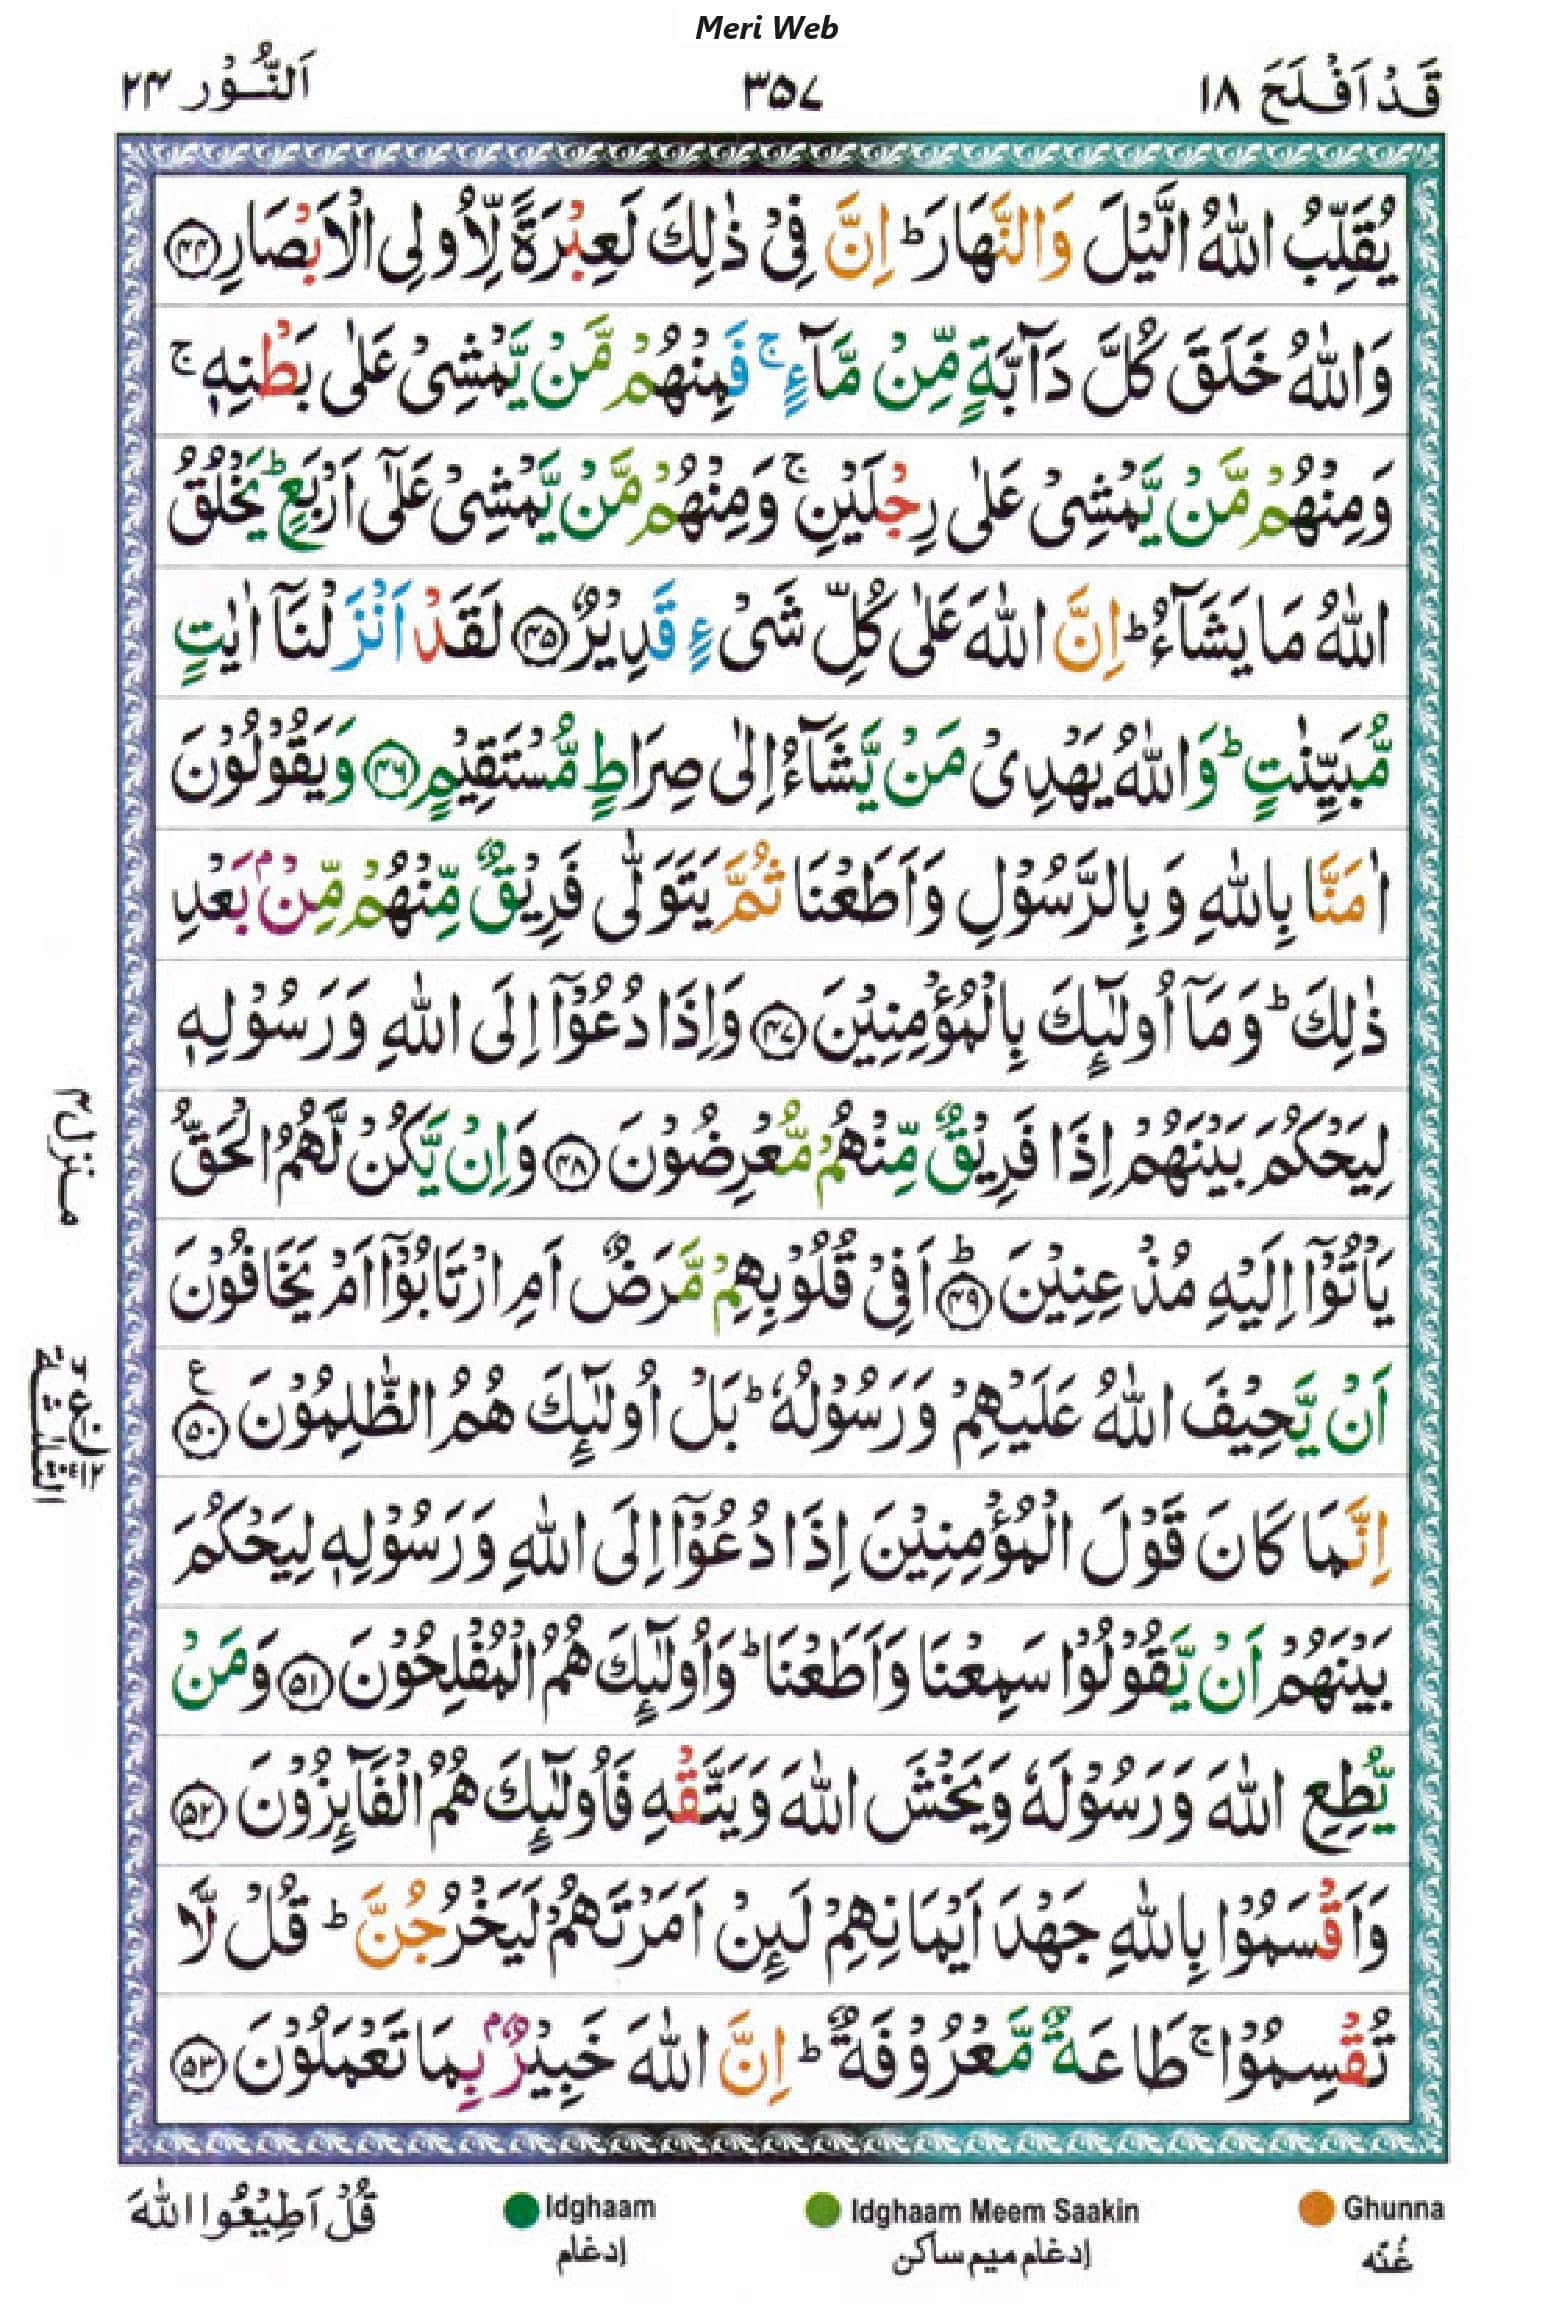 Meri Web
قَدْ اَفْلَحَ ١٨
٣٥٧
اَلنُّوْر ٢٤
يُقَلِّبُ اللّٰهُ الَّيْلَ وَالنَّهَارَ ؕ اِنَّ فِيْ ذٰلِكَ لَعِبْرَةً لِّاُولِي الْاَبْصَارِ ﴿۴۴﴾
وَاللّٰهُ خَلَقَ كُلَّ دَآبَّةٍ مِّنْ مَّآءٍ ۚ فَمِنْهُمْ مَّنْ يَّمْشِيْ عَلٰى بَطْنِهٖ ۚ
وَمِنْهُمْ مَّنْ يَّمْشِيْ عَلٰى رِجْلَيْنِ ۚ وَمِنْهُمْ مَّنْ يَّمْشِيْ عَلٰٓى اَرْبَعٍ ؕ يَخْلُقُ
اللّٰهُ مَا يَشَآءُ ؕ اِنَّ اللّٰهَ عَلٰى كُلِّ شَيْءٍ قَدِيْرٌ ﴿۴۵﴾ لَقَدْ اَنْزَلْنَآ اٰيٰتٍ
مُّبَيِّنٰتٍ ؕ وَاللّٰهُ يَهْدِيْ مَنْ يَّشَآءُ اِلٰى صِرَاطٍ مُّسْتَقِيْمٍ ﴿۴۶﴾ وَيَقُوْلُوْنَ
اٰمَنَّا بِاللّٰهِ وَبِالرَّسُوْلِ وَاَطَعْنَا ثُمَّ يَتَوَلّٰى فَرِيْقٌ مِّنْهُمْ مِّنْۢ بَعْدِ
ذٰلِكَ ؕ وَمَآ اُولٰٓئِكَ بِالْمُؤْمِنِيْنَ ﴿۴۷﴾ وَاِذَا دُعُوْٓا اِلَى اللّٰهِ وَرَسُوْلِهٖ
لِيَحْكُمَ بَيْنَهُمْ اِذَا فَرِيْقٌ مِّنْهُمْ مُّعْرِضُوْنَ ﴿۴۸﴾ وَاِنْ يَّكُنْ لَّهُمُ الْحَقُّ
يَاْتُوْٓا اِلَيْهِ مُذْعِنِيْنَ ؕ ﴿۴۹﴾ اَفِيْ قُلُوْبِهِمْ مَّرَضٌ اَمِ ارْتَابُوْٓا اَمْ يَخَافُوْنَ
اَنْ يَّحِيْفَ اللّٰهُ عَلَيْهِمْ وَرَسُوْلُهٗ ؕ بَلْ اُولٰٓئِكَ هُمُ الظّٰلِمُوْنَ ﴿۵۰﴾ ع
اِنَّمَا كَانَ قَوْلَ الْمُؤْمِنِيْنَ اِذَا دُعُوْٓا اِلَى اللّٰهِ وَرَسُوْلِهٖ لِيَحْكُمَ
بَيْنَهُمْ اَنْ يَّقُوْلُوْا سَمِعْنَا وَاَطَعْنَا ؕ وَاُولٰٓئِكَ هُمُ الْمُفْلِحُوْنَ ﴿۵۱﴾ وَمَنْ
يُّطِعِ اللّٰهَ وَرَسُوْلَهٗ وَيَخْشَ اللّٰهَ وَيَتَّقْهِ فَاُولٰٓئِكَ هُمُ الْفَآئِزُوْنَ ﴿۵۲﴾
وَاَقْسَمُوْا بِاللّٰهِ جَهْدَ اَيْمَانِهِمْ لَئِنْ اَمَرْتَهُمْ لَيَخْرُجُنَّ ؕ قُلْ لَّا
تُقْسِمُوْا ۚ طَاعَةٌ مَّعْرُوْفَةٌ ؕ اِنَّ اللّٰهَ خَبِيْرٌۢ بِمَا تَعْمَلُوْنَ ﴿۵۳﴾
منزل ۴
الثلثة
Ghunna
غُنّه
Idghaam Meem Saakin
إدغام ميم ساكن
Idghaam
إدغام
قُلْ اَطِيْعُوا اللّٰهَ